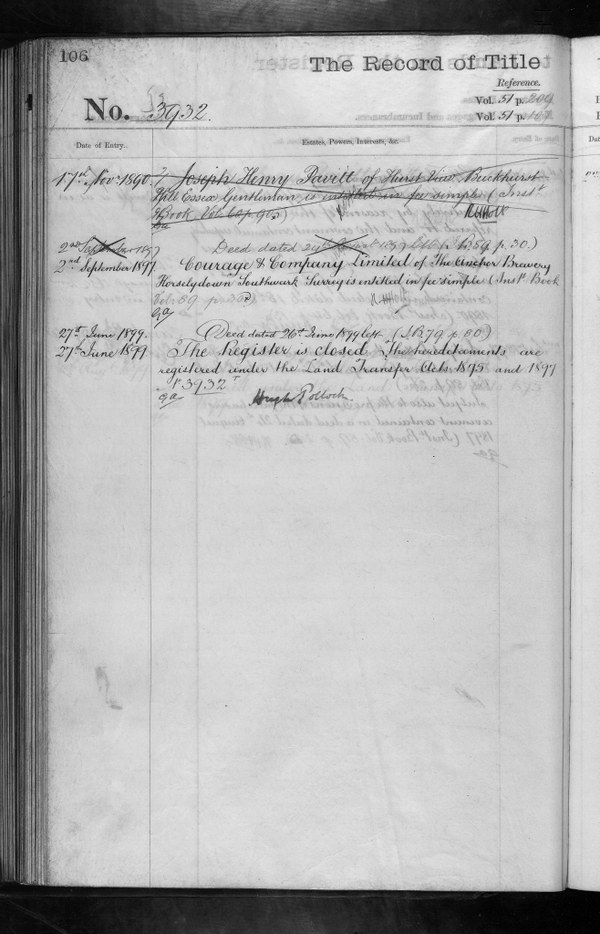 106
The Record of Title
Reference.
No. 3932.
Vol. 51 p. 209
Vol. 51 p. 107
Date of Entry.
Estates, Powers, Interests, &c.
17th Novr 1890. Joseph Henry Pavitt of Hurst View Buckhurst
Hill Essex Gentleman is entitled in fee simple (Inst
Book Vol. p. 90)
2nd September 1897 Deed dated 1897 p. 30.)
2nd September 1897 Courage & Company Limited of The Anchor Brewery
Horselydown Southwark Surrey is entitled in fee simple (Inst Book
Vol. 59
27th June 1899. Deed dated 26th June 1899 left (IB 79 p. 80)
27th June 1899 The Register is closed. The hereditaments are
registered under the Land Transfer Acts 1875 and 1897
No 3932
Hugh Pollock.